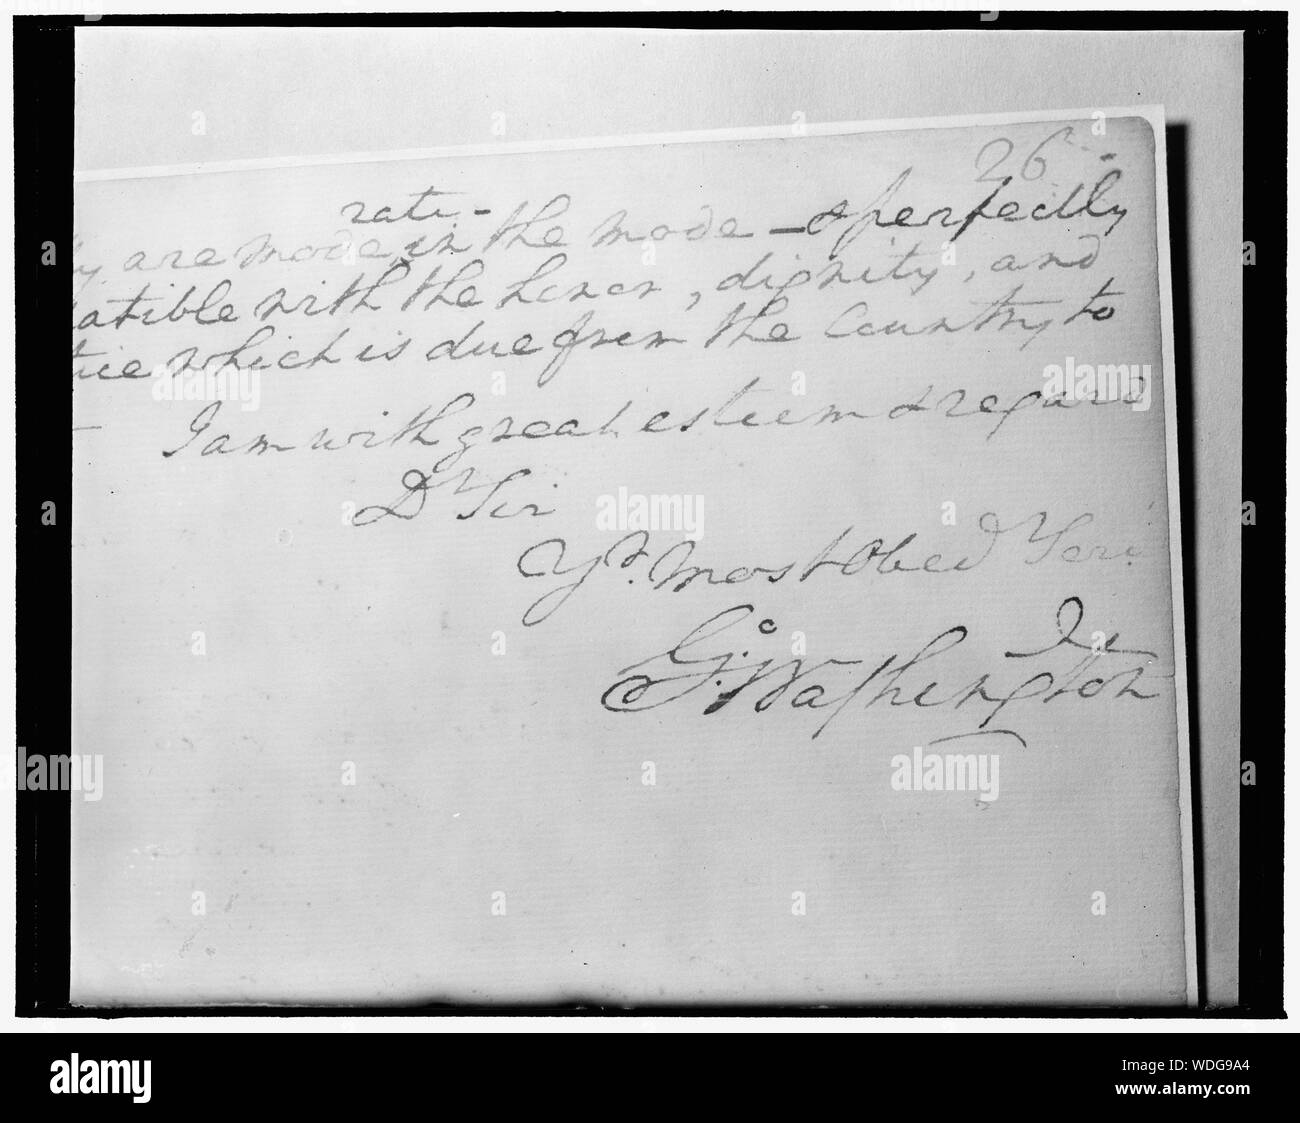 26
rati-
ly are made in the mode - & perfectly
atible with the honor, dignity, and
tice which is due from the Country to
I am with great esteem & regard
Dr Sir
Yr. Most Obed Ser.
Go: Washington
alamy
www.alamy.com
Image ID: WDG9A4